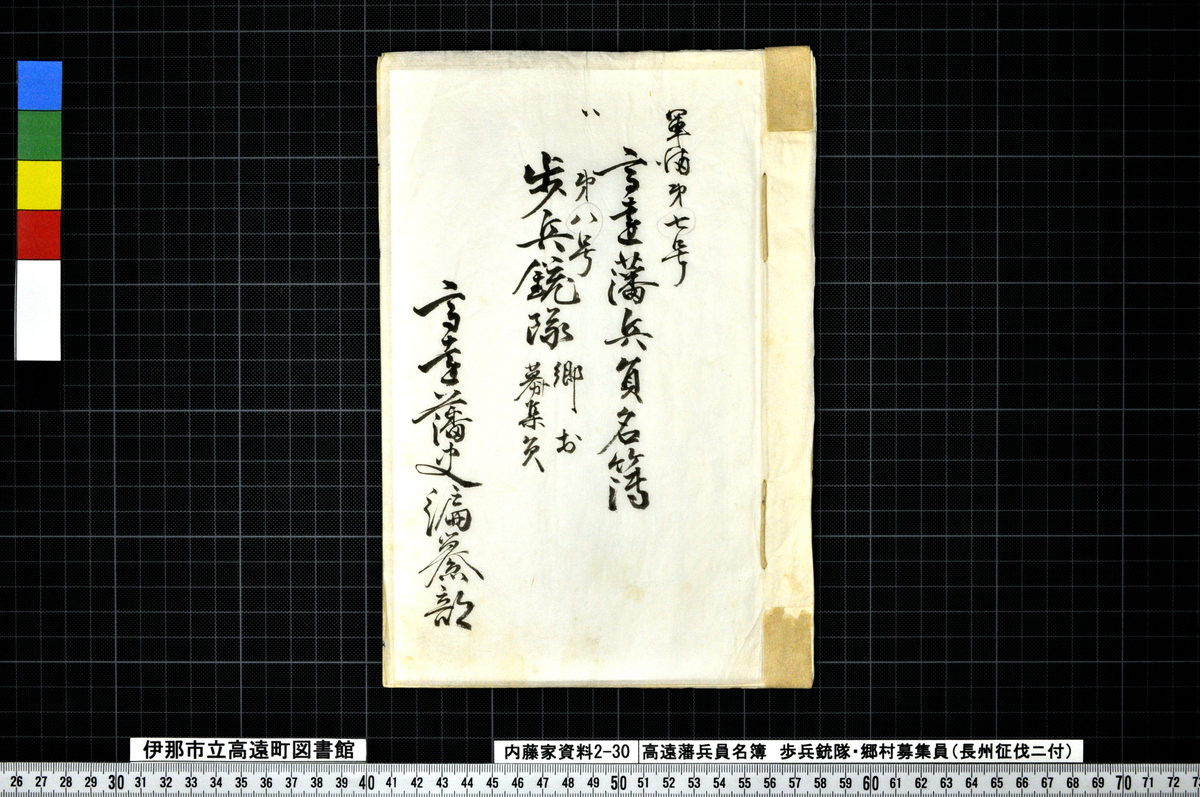 軍備第七号
高遠藩兵員名簿
〃 第八号
歩兵銃隊 郷村
募集員
高遠藩史編纂部
伊那市立高遠町図書館
内藤家資料2-30 高遠藩兵員名簿 歩兵銃隊・郷村募集員(長州征伐ニ付)
26 27 28 29 30 31 32 33 34 35 36 37 38 39 40 41 42 43 44 45 46 47 48 49 50 51 52 53 54 55 56 57 58 59 60 61 62 63 64 65 66 67 68 69 70 71 72